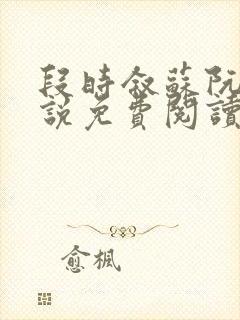 段時敘蘇阮
說免費閱讀
愈楓